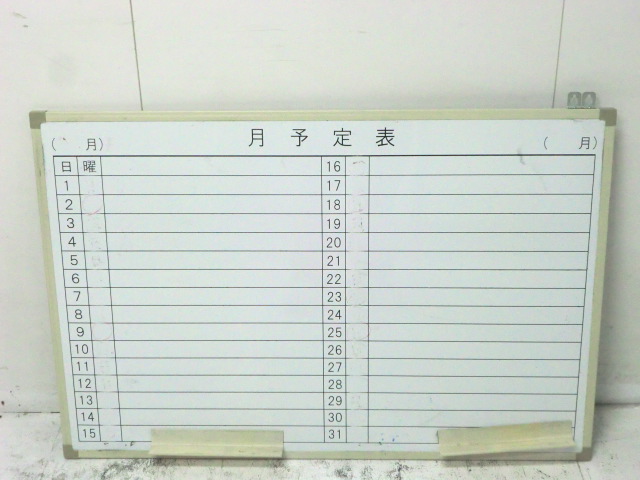 月予定表
( 月) ( 月)
日 曜 16
1 17
2 18
3 19
4 20
5 21
6 22
7 23
8 24
9 25
10 26
11 27
12 28
13 29
14 30
15 31